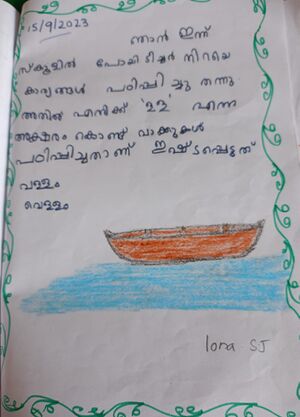 15/9/2023
ഞാൻ ഇന്ന്
സ്കൂളിൽ പോയി ടീച്ചർ നിറയെ
കാര്യങ്ങൾ പഠിപ്പിച്ചു തന്നു
അതിൽ എനിക്ക് 'ള്ള' എന്ന
അക്ഷരം കൊണ്ടു വാക്കുകൾ
പഠിപ്പിച്ചതാണ് ഇഷ്ടപ്പെട്ടത്
വള്ളം
വെള്ളം
lora SJ